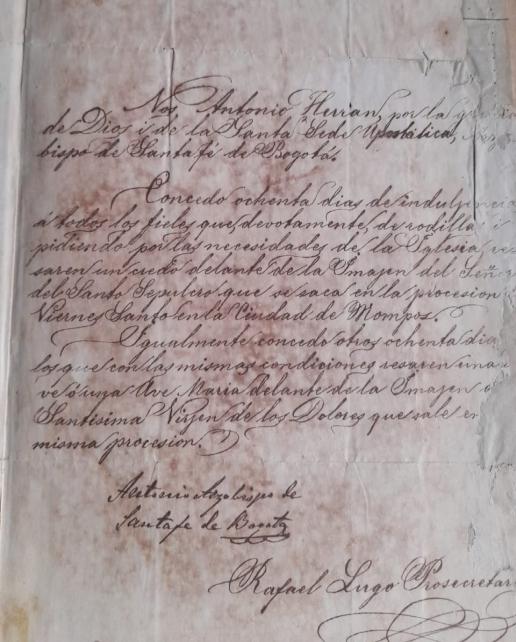 Nos, Antonio, Herran, por la gra
de Dios i de la Santa Sede Apostálica,
bispo de Santafé de Bogotá.
Concedo ochenta dias de indulgencia
á todos los fieles que, devotamente, de rodillas i
pidiendo por las necesidades de la Iglesia, re
saren un credo delante de la Imajen del Seño
del Santo Sepulcro que se saca en la procesion
Viernes Santo en la Ciudad de Mompos.
Igualmente concedo otros ochenta dia
los que con las mismas condiciones resaren una
ve ó una Ave Maria delante de la Imajen
Santisima Virjen de los Dolores que sale en
misma procesion.
Antonio Arzobispo de
Santafe de Bogota
Rafael Lugo Prosecretar